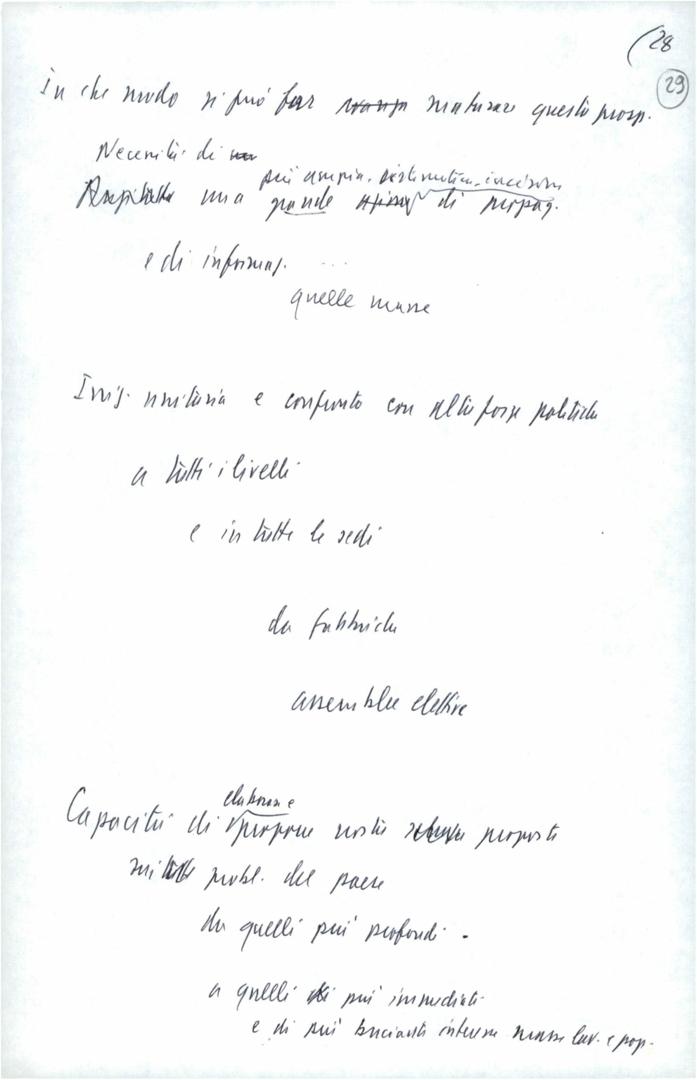 (28
29
In che modo si può far maturare questa prosp.
Necessità di
più ampia, sistematica, incisiva
una grande di propag.
e di informaz. ...
quelle masse
Iniz. unitaria e confronto con altre forze politiche
a tutti i livelli
e in tutte le sedi
da fabbriche
assemblee elettive
elaborare e
Capacità di proporre nostre proposte
su probl. del paese
da quelli più profondi.
a quelli più immediati
e di più brucianti interesse masse lav. e pop.